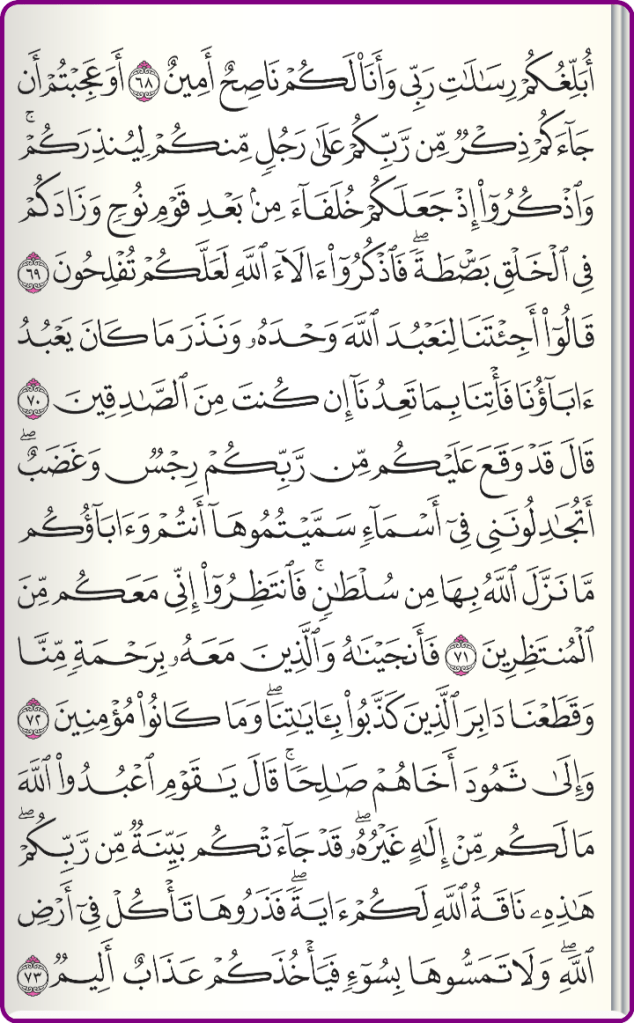 أُبَلِّغُكُمْ رِسَٰلَٰتِ رَبِّى وَأَنَا۠ لَكُمْ نَاصِحٌ أَمِينٌ ٦٨ أَوَعَجِبْتُمْ أَن
جَآءَكُمْ ذِكْرٌ مِّن رَّبِّكُمْ عَلَىٰ رَجُلٍ مِّنكُمْ لِيُنذِرَكُمْ ۚ
وَٱذْكُرُوٓا۟ إِذْ جَعَلَكُمْ خُلَفَآءَ مِنۢ بَعْدِ قَوْمِ نُوحٍ وَزَادَكُمْ
فِى ٱلْخَلْقِ بَصْۜطَةً ۖ فَٱذْكُرُوٓا۟ ءَالَآءَ ٱللَّهِ لَعَلَّكُمْ تُفْلِحُونَ ٦٩
قَالُوٓا۟ أَجِئْتَنَا لِنَعْبُدَ ٱللَّهَ وَحْدَهُۥ وَنَذَرَ مَا كَانَ يَعْبُدُ
ءَابَآؤُنَا فَأْتِنَا بِمَا تَعِدُنَآ إِن كُنتَ مِنَ ٱلصَّٰدِقِينَ ٧٠
قَالَ قَدْ وَقَعَ عَلَيْكُم مِّن رَّبِّكُمْ رِجْسٌ وَغَضَبٌ ۖ
أَتُجَٰدِلُونَنِى فِىٓ أَسْمَآءٍ سَمَّيْتُمُوهَآ أَنتُمْ وَءَابَآؤُكُم
مَّا نَزَّلَ ٱللَّهُ بِهَا مِن سُلْطَٰنٍ ۚ فَٱنتَظِرُوٓا۟ إِنِّى مَعَكُم مِّنَ
ٱلْمُنتَظِرِينَ ٧١ فَأَنجَيْنَٰهُ وَٱلَّذِينَ مَعَهُۥ بِرَحْمَةٍ مِّنَّا
وَقَطَعْنَا دَابِرَ ٱلَّذِينَ كَذَّبُوا۟ بِـَٔايَٰتِنَا ۖ وَمَا كَانُوا۟ مُؤْمِنِينَ ٧٢
وَإِلَىٰ ثَمُودَ أَخَاهُمْ صَٰلِحًا ۗ قَالَ يَٰقَوْمِ ٱعْبُدُوا۟ ٱللَّهَ
مَا لَكُم مِّنْ إِلَٰهٍ غَيْرُهُۥ ۖ قَدْ جَآءَتْكُم بَيِّنَةٌ مِّن رَّبِّكُمْ ۖ
هَٰذِهِۦ نَاقَةُ ٱللَّهِ لَكُمْ ءَايَةً ۖ فَذَرُوهَا تَأْكُلْ فِىٓ أَرْضِ
ٱللَّهِ ۖ وَلَا تَمَسُّوهَا بِسُوٓءٍ فَيَأْخُذَكُمْ عَذَابٌ أَلِيمٌ ٧٣